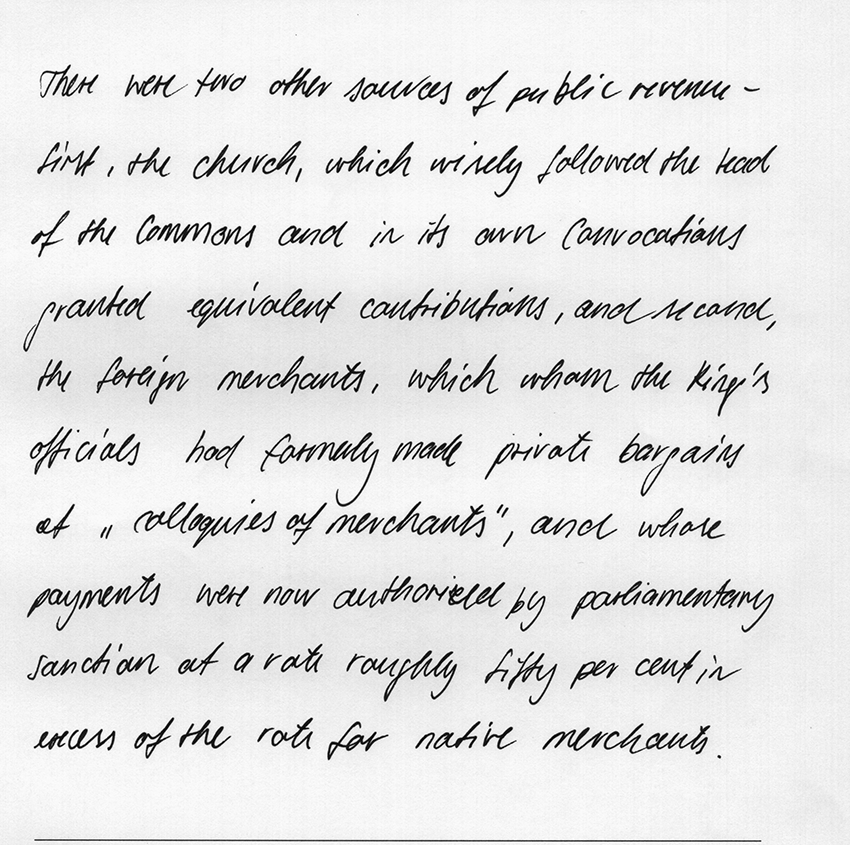 There were two other sources of public revenue -
first, the church, which wisely followed the lead
of the Commons and in its own Convocations
granted equivalent contributions, and second,
the foreign merchants, which whom the King's
officials had formerly made private bargains
at „colloquies of merchants", and whose
payments were now authorized by parliamentary
sanction at a rate roughly fifty per cent in
excess of the rate for native merchants.